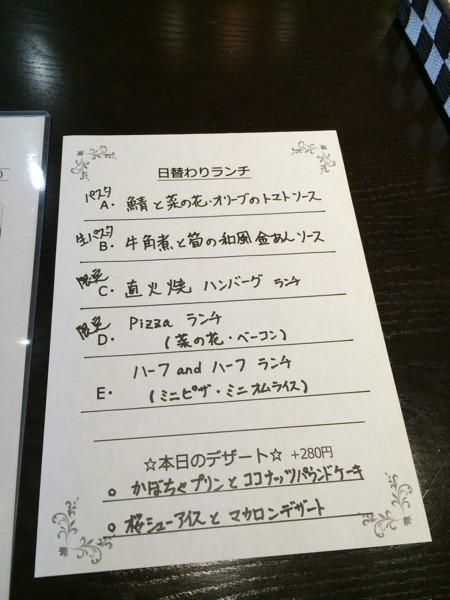 日替わりランチ
パスタ
A. 鯖と菜の花・オリーブのトマトソース
生パスタ
B. 牛角煮と筍の和風金あんソース
限定
C. 直火焼 ハンバーグ ランチ
限定
D. Pizza ランチ
(菜の花・ベーコン)
ハーフ and ハーフ ランチ
E. (ミニピザ・ミニオムライス)
☆本日のデザート☆ +280円
○ かぼちゃプリンとココナッツパウンドケーキ
○ 桜シューアイスと マカロンデザート